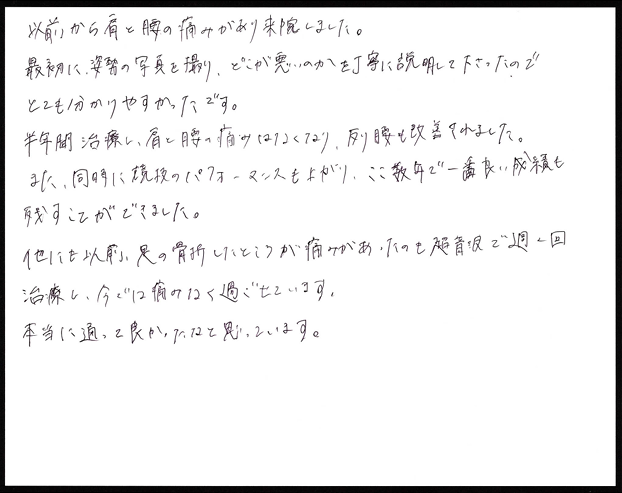 以前から肩と腰の痛みがあり来院しました。
最初に、姿勢の写真を撮り、どこが悪いのかを丁寧に説明して下さったので
とても分かりやすかったです。
半年間治療し、肩と腰の痛みはなくなり、反り腰も改善されました。
また、同時に競技のパフォーマンスも上がり、ここ数年で一番良い成績も
残すことができました。
他にも以前、足の骨折したところが痛みがあったのも超音波で週2回
治療し、今では痛みなく過ごせています。
本当に通って良かったなと思っています。